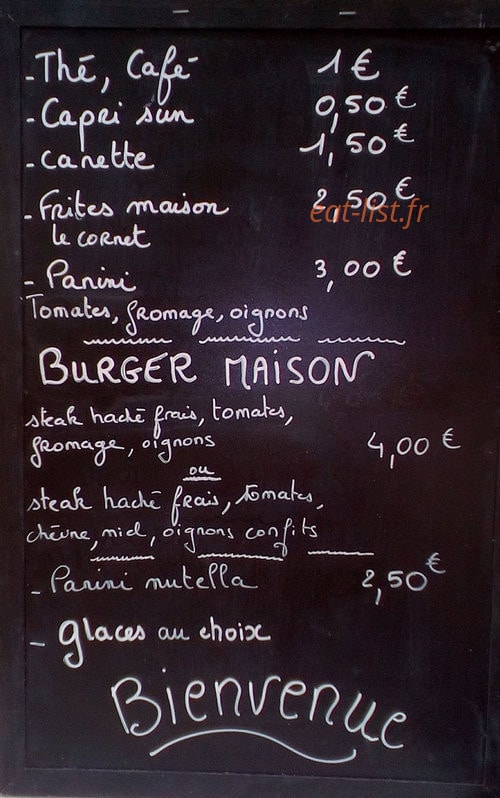 - Thé, Café 1 €
- Capri sun 0,50 €
- canette 1,50 €
- Frites maison 2,50 €
eat-list.fr
le cornet
- Panini 3,00 €
Tomates, fromage, oignons
BURGER MAISON
steak haché frais, tomates,
fromage, oignons 4,00 €
ou
steak haché frais, tomates,
chèvre, miel, oignons confits
- Panini nutella 2,50 €
- glaces au choix
Bienvenue